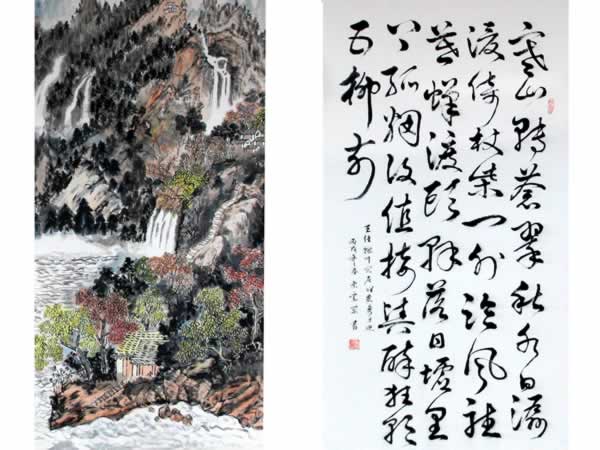 寒山轉蒼翠秋水日潺
湲倚杖柴门外临风聽
暮蟬渡頭餘落日墟里
上孤烟復值接輿醉狂歌
五柳前
王维辋川闲居赠裴秀才迪
丙戌年春 書